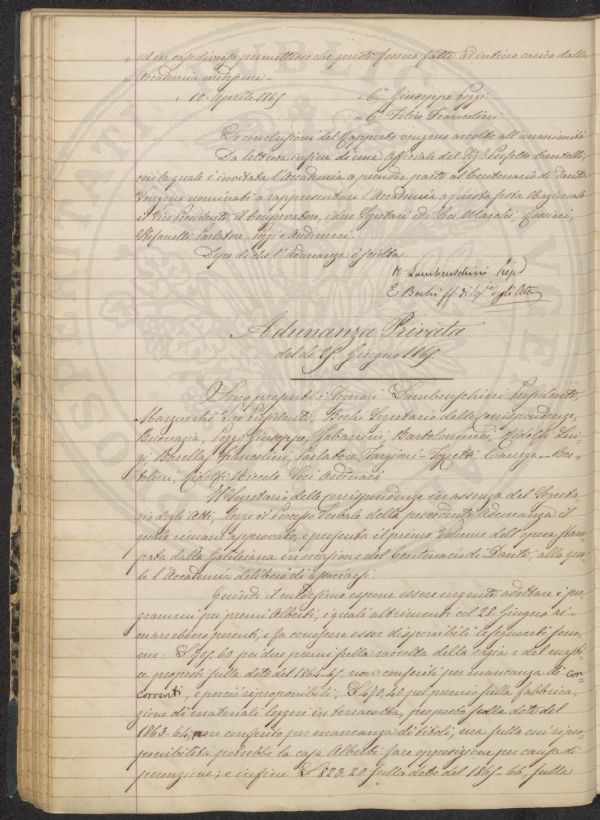 ed in caso diverso permettesse che questi fossero fatti ad intiero carico dalla
Accademia medesima
10 Aprile 1865 Co. Giuseppe Pozzi
Co. Felice Francolini
Le conclusioni del Rapporto vengono accolte all'unanimità
Da lettura infine di una Officiale del Sig. Prefetto Cantelli,
con la quale è invitata l'Accademia a prender parte al Centenario di Dante
Vengono nominati a rappresentare l'Accademia a questa festa Nazionale
il Vice Presidente, il Conservatore, i due Segretari ed i Soci
Stefanelli, Parlatore, Pozzi e Andreucci.
Dopo di che l'Adunanza è sciolta
R Lambruschini
E Bechi ff. di Seg. degli Atti
Adunanza Privata
del dì 25 Giugno 1865
Sono presenti i Lambruschini Presidente,
Vice Presidente, Bechi Segretario delle corrispondenze,
Buonazia, Pozzi Giuseppe, Tabarrini, Bartolommei, Ridolfi Lui-
gi, Francolini, Parlatore, Targioni-Tozzetti, Carega,
Ridolfi Niccolò Soci Ordinari
Il Segretario delle corrispondenze in assenza del Segreta-
rio degli Atti, legge il Processo Verbale della precedente Adunanza il
quale rimane approvato, e presenta il primo Volume dell'opera stam-
pata dalla Galileiana in occasione del Centenario di Dante, alla qua-
le l'Accademia deliberò di associarsi.
Quindi il medesimo espone essere urgente adottare i pro-
grammi pei premi Alberti, i quali altrimenti col 28 Giugno ri-
marrebbero perenti, e fa conoscere esser disponibili le seguenti som-
me: per due premi sulla raccolta
proposti sulla dote del 1864-65, non conferiti per mancanza di con-
correnti, e perciò riproponibili; pel premio sulla fabbrica-
zione di materiali leggeri in terracotta, proposto sulla dote del
1863-64, non conferito per mancanza di titoli, ma sulla cui ripro-
ponibilità potrebbe la casa Alberti fare opposizione per causa di
perenzione; e infine L 823.20 sulla dote del 1865-66, sulla